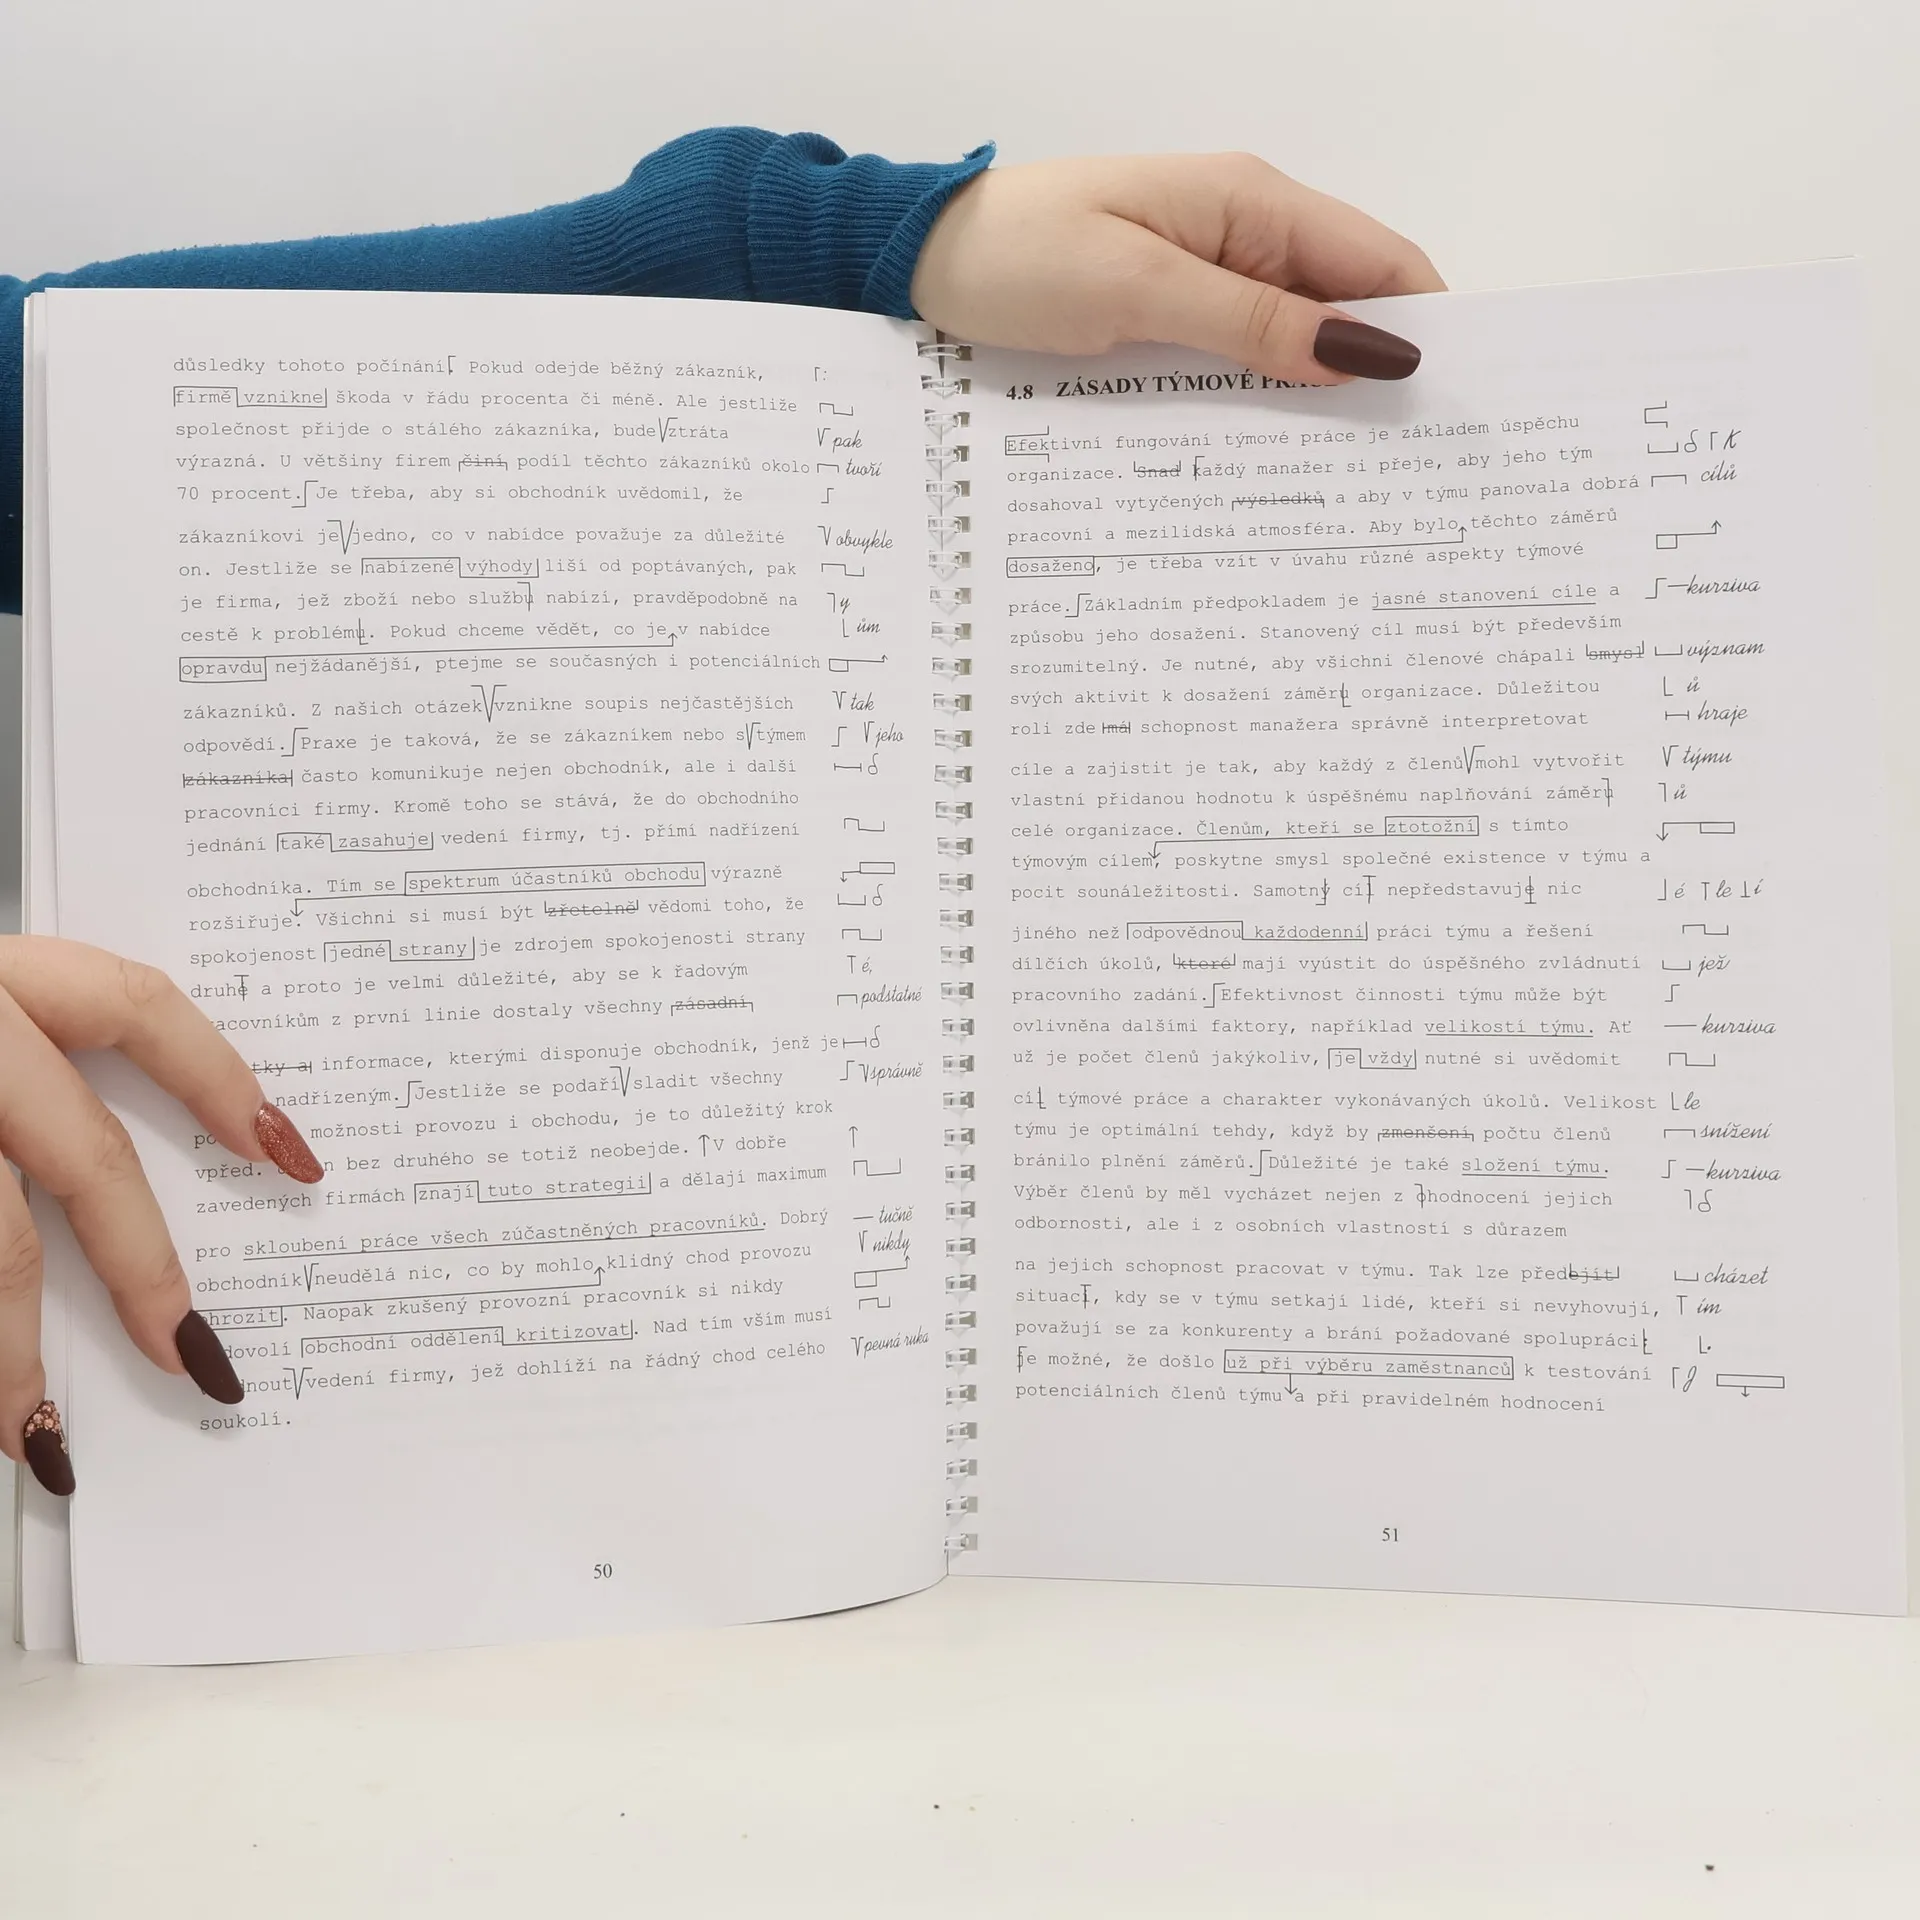 důsledky tohoto počínání. Pokud odejde běžný zákazník, ⌈:
firmě vznikne škoda v řádu procenta či méně. Ale jestliže
společnost přijde o stálého zákazníka, bude ztráta V pak
výrazná. U většiny firem činí podíl těchto zákazníků okolo tvoří
70 procent. Je třeba, aby si obchodník uvědomil, že
zákazníkovi je jedno, co v nabídce považuje za důležité V obvykle
on. Jestliže se nabízené výhody liší od poptávaných, pak
je firma, jež zboží nebo službu nabízí, pravděpodobně na y
cestě k problému. Pokud chceme vědět, co je v nabídce ům
opravdu nejžádanější, ptejme se současných i potenciálních
zákazníků. Z našich otázek vznikne soupis nejčastějších V tak
odpovědí. Praxe je taková, že se zákazníkem nebo s týmem V jeho
zákazníka často komunikuje nejen obchodník, ale i další
pracovníci firmy. Kromě toho se stává, že do obchodního
jednání také zasahuje vedení firmy, tj. přímí nadřízení
obchodníka. Tím se spektrum účastníků obchodu výrazně
rozšiřuje. Všichni si musí být zřetelně vědomi toho, že
spokojenost jedné strany je zdrojem spokojenosti strany
druhé a proto je velmi důležité, aby se k řadovým é,
acovníkům z první linie dostaly všechny zásadní podstatné
tky a informace, kterými disponuje obchodník, jenž je
nadřízeným. Jestliže se podaří sladit všechny V správně
po možnosti provozu i obchodu, je to důležitý krok
vpřed. n bez druhého se totiž neobejde. V dobře
zavedených firmách znají tuto strategii a dělají maximum
pro skloubení práce všech zúčastněných pracovníků. Dobrý — tučně
obchodník neudělá nic, co by mohlo klidný chod provozu V nikdy
ohrozit. Naopak zkušený provozní pracovník si nikdy
dovolí obchodní oddělení kritizovat. Nad tím vším musí
dnout vedení firmy, jež dohlíží na řádný chod celého V pevná ruka
soukolí.
50
4.8 ZÁSADY TÝMOVÉ
Efektivní fungování týmové práce je základem úspěchu
organizace. Snad každý manažer si přeje, aby jeho tým K
dosahoval vytyčených výsledků a aby v týmu panovala dobrá cílů
pracovní a mezilidská atmosféra. Aby bylo těchto záměrů
dosaženo, je třeba vzít v úvahu různé aspekty týmové
práce. Základním předpokladem je jasné stanovení cíle a — kurziva
způsobu jeho dosažení. Stanovený cíl musí být především
srozumitelný. Je nutné, aby všichni členové chápali smysl význam
svých aktivit k dosažení záměru organizace. Důležitou ů
roli zde má schopnost manažera správně interpretovat hraje
cíle a zajistit je tak, aby každý z členů mohl vytvořit V týmu
vlastní přidanou hodnotu k úspěšnému naplňování záměru ů
celé organizace. Členům, kteří se ztotožní s tímto
týmovým cílem, poskytne smysl společné existence v týmu a
pocit sounáležitosti. Samotný cíl nepředstavuje nic é le í
jiného než odpovědnou každodenní práci týmu a řešení
dílčích úkolů, které mají vyústit do úspěšného zvládnutí jež
pracovního zadání. Efektivnost činnosti týmu může být
ovlivněna dalšími faktory, například velikostí týmu. Ať — kurziva
už je počet členů jakýkoliv, je vždy nutné si uvědomit
cíl týmové práce a charakter vykonávaných úkolů. Velikost le
týmu je optimální tehdy, když by zmenšení počtu členů snížení
bránilo plnění záměrů. Důležité je také složení týmu. — kurziva
Výběr členů by měl vycházet nejen z ohodnocení jejich
odbornosti, ale i z osobních vlastností s důrazem
na jejich schopnost pracovat v týmu. Tak lze předejít cházet
situaci, kdy se v týmu setkají lidé, kteří si nevyhovují, ím
považují se za konkurenty a brání požadované spolupráci .
je možné, že došlo už při výběru zaměstnanců k testování J
potenciálních členů týmu a při pravidelném hodnocení
51